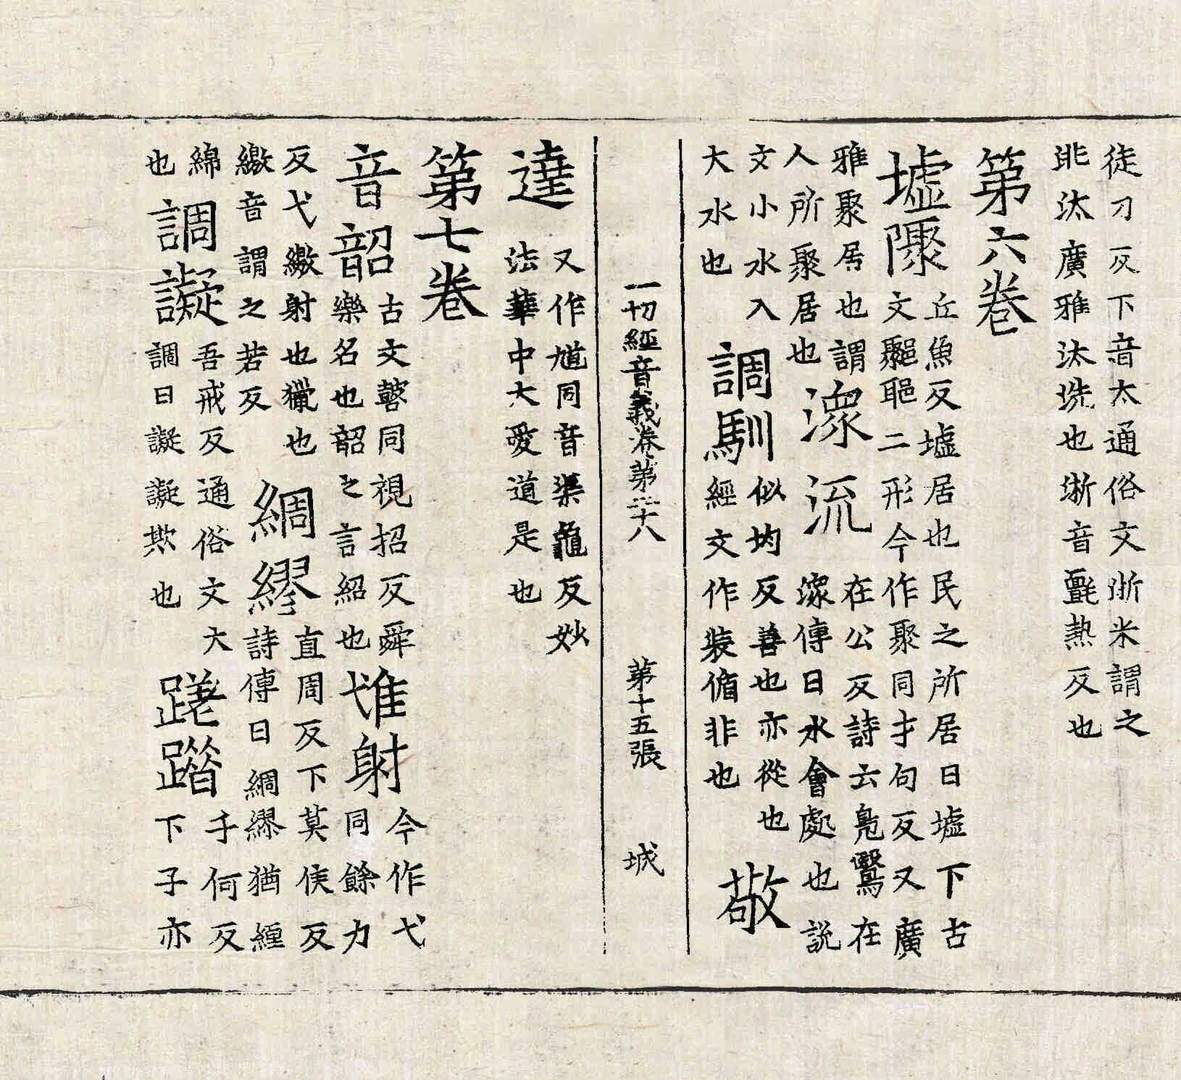 徒刀反下音太通俗文淅米謂之
洮汰廣雅汰洗也淅音氎熱反也
第六卷
墟隟
丘魚反墟居也民之所居曰墟下古
文二形今作聚同才句反又廣
雅聚居也謂
人所聚居也
潨流
在公反詩云鳧鷖在
潨傳曰水會處也説
文小水入
大水也
調馴
似均反善也亦從也
經文作裝脩非也
敬
一切經音義卷第二十八 第十五張 城
達
又作馗同音渠龜反妙
法華中大愛道是也
第七卷
音韶
古文同視招反舜
樂名也韶之言紹也
隿射
今作弋
同餘力
反弋繳射也獵也
繳音謂之若反
綢繆
直周反下莫侯反
詩傳曰綢繆猶纏
綿
也
調譺
吾戒反通俗文大
調曰譺譺欺也
蹉踖
千何反
下子亦